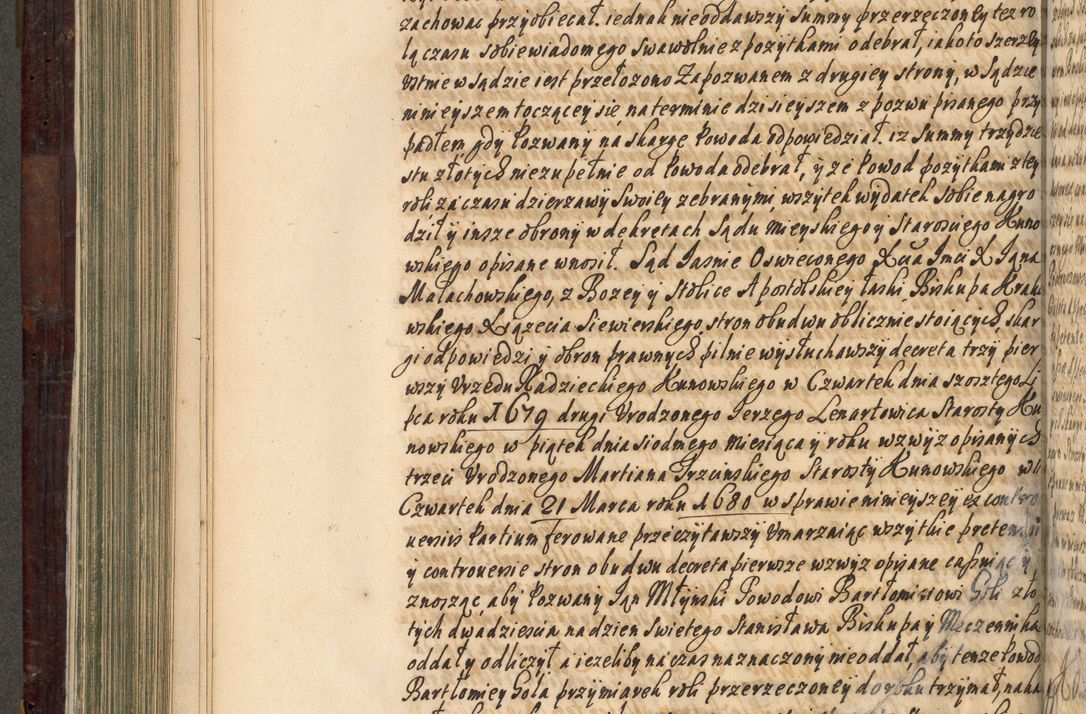 zachować przyobiecał. iednak nieoddawszy summy przerzeczoney tez ro
lą czasu sobie wiadomego swawolnie z pozytkami odebrał, iako to szerzey
vstnie w sądzie iest przełozono Zapozwanem z drugiey strony, w sądzie
ninieyszem toczącey się na terminie dzisieyszem z pozwu pisanego przy
padłem gdy Pozwany na skargę Powoda odpowiedział. iz summy trzydzie
stu złotych niezupełnie od Powoda odebrał, y ze Powod pozytkami z tey
roli za czasu dzierzawy swoiey zebranymi wszytek wydatek sobie nagro
dził y insze obrony w dekretach sądu Mieyskiego y Starosciego Kuno
wskiego opisane wnosił. Sąd Iasnie Oswieconego Xcia Imci X Iana
Małachowskiego, z Bozey y Stolice Apostolskiey łaski Biskupa Krako
wskiego Xiązęcia Siewierskiego, stron obudwu oblicznie stoiących skar
gi odpowiedzi y obron prawnych pilnie wysłuchawszy decreta trzy pier
wszy Vrzędu Radzieckiego Kunowskiego w Czwartek dnia szostego Li
pca roku 1679 drugi Vrodzonego Ierzego Lenartowica Starosty Ku
nowskiego w piątek dnia siodmego Miesiąca y roku wzwyz opisanych
trzeci Vrodzonego Martiana Trzcinskiego Starosty Kunowskiego w
Czwartek dnia 21 Marca roku 1680 w sprawie ninieyszey ex contro
uersiis Partium ferowane przeczytawszy Vmarzaiąc wszytkie pretensii
y controuersie stron obudwu decreta pierwsze wzwyz opisane cassuiąc y
znosząc aby Pozwany Ian Młyński Powodowi Bartłomieiowi Goli zło
tych dwadziescia na dzien swiętego Stanisława Biskupa y Męczennika
oddał y odliczył a iezeliby na czas naznaczony nie oddał, aby tenze Powod
Bartłomiey Gola przymiarek roli przerzeczoney do roku trzymał, na